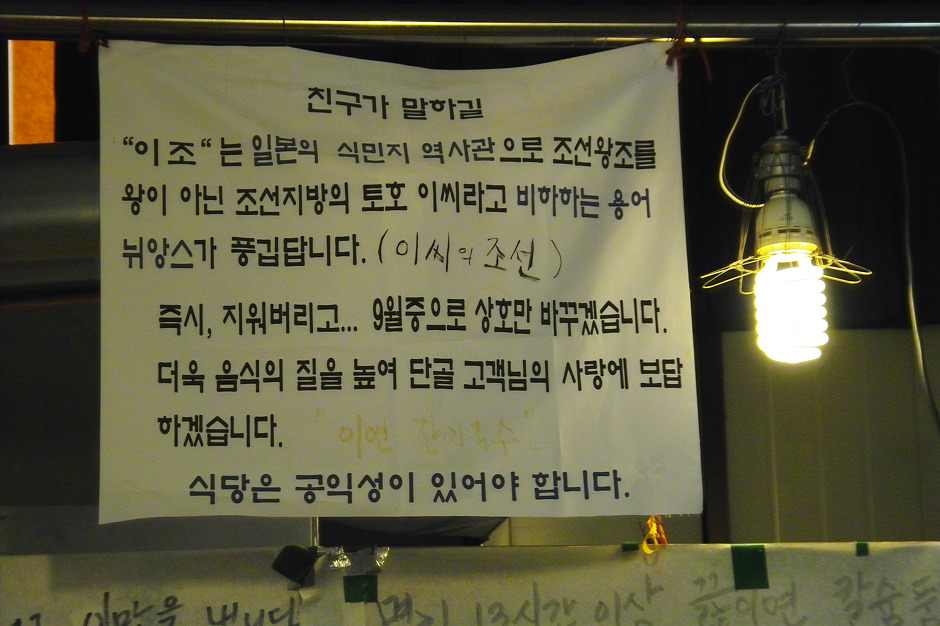 친구가 말하길
"이조"는 일본의 식민지 역사관으로 조선왕조를
왕이 아닌 조선지방의 토호 이씨라고 비하하는 용어
뉘앙스가 풍깁답니다. (이씨의 조선)
즉시, 지워버리고... 9월중으로 상호만 바꾸겠습니다.
더욱 음식의 질을 높여 단골 고객님의 사랑에 보답
하겠습니다. "이연 잔치국수"
식당은 공익성이 있어야 합니다.
13시간 이상 끓이면 칼슘